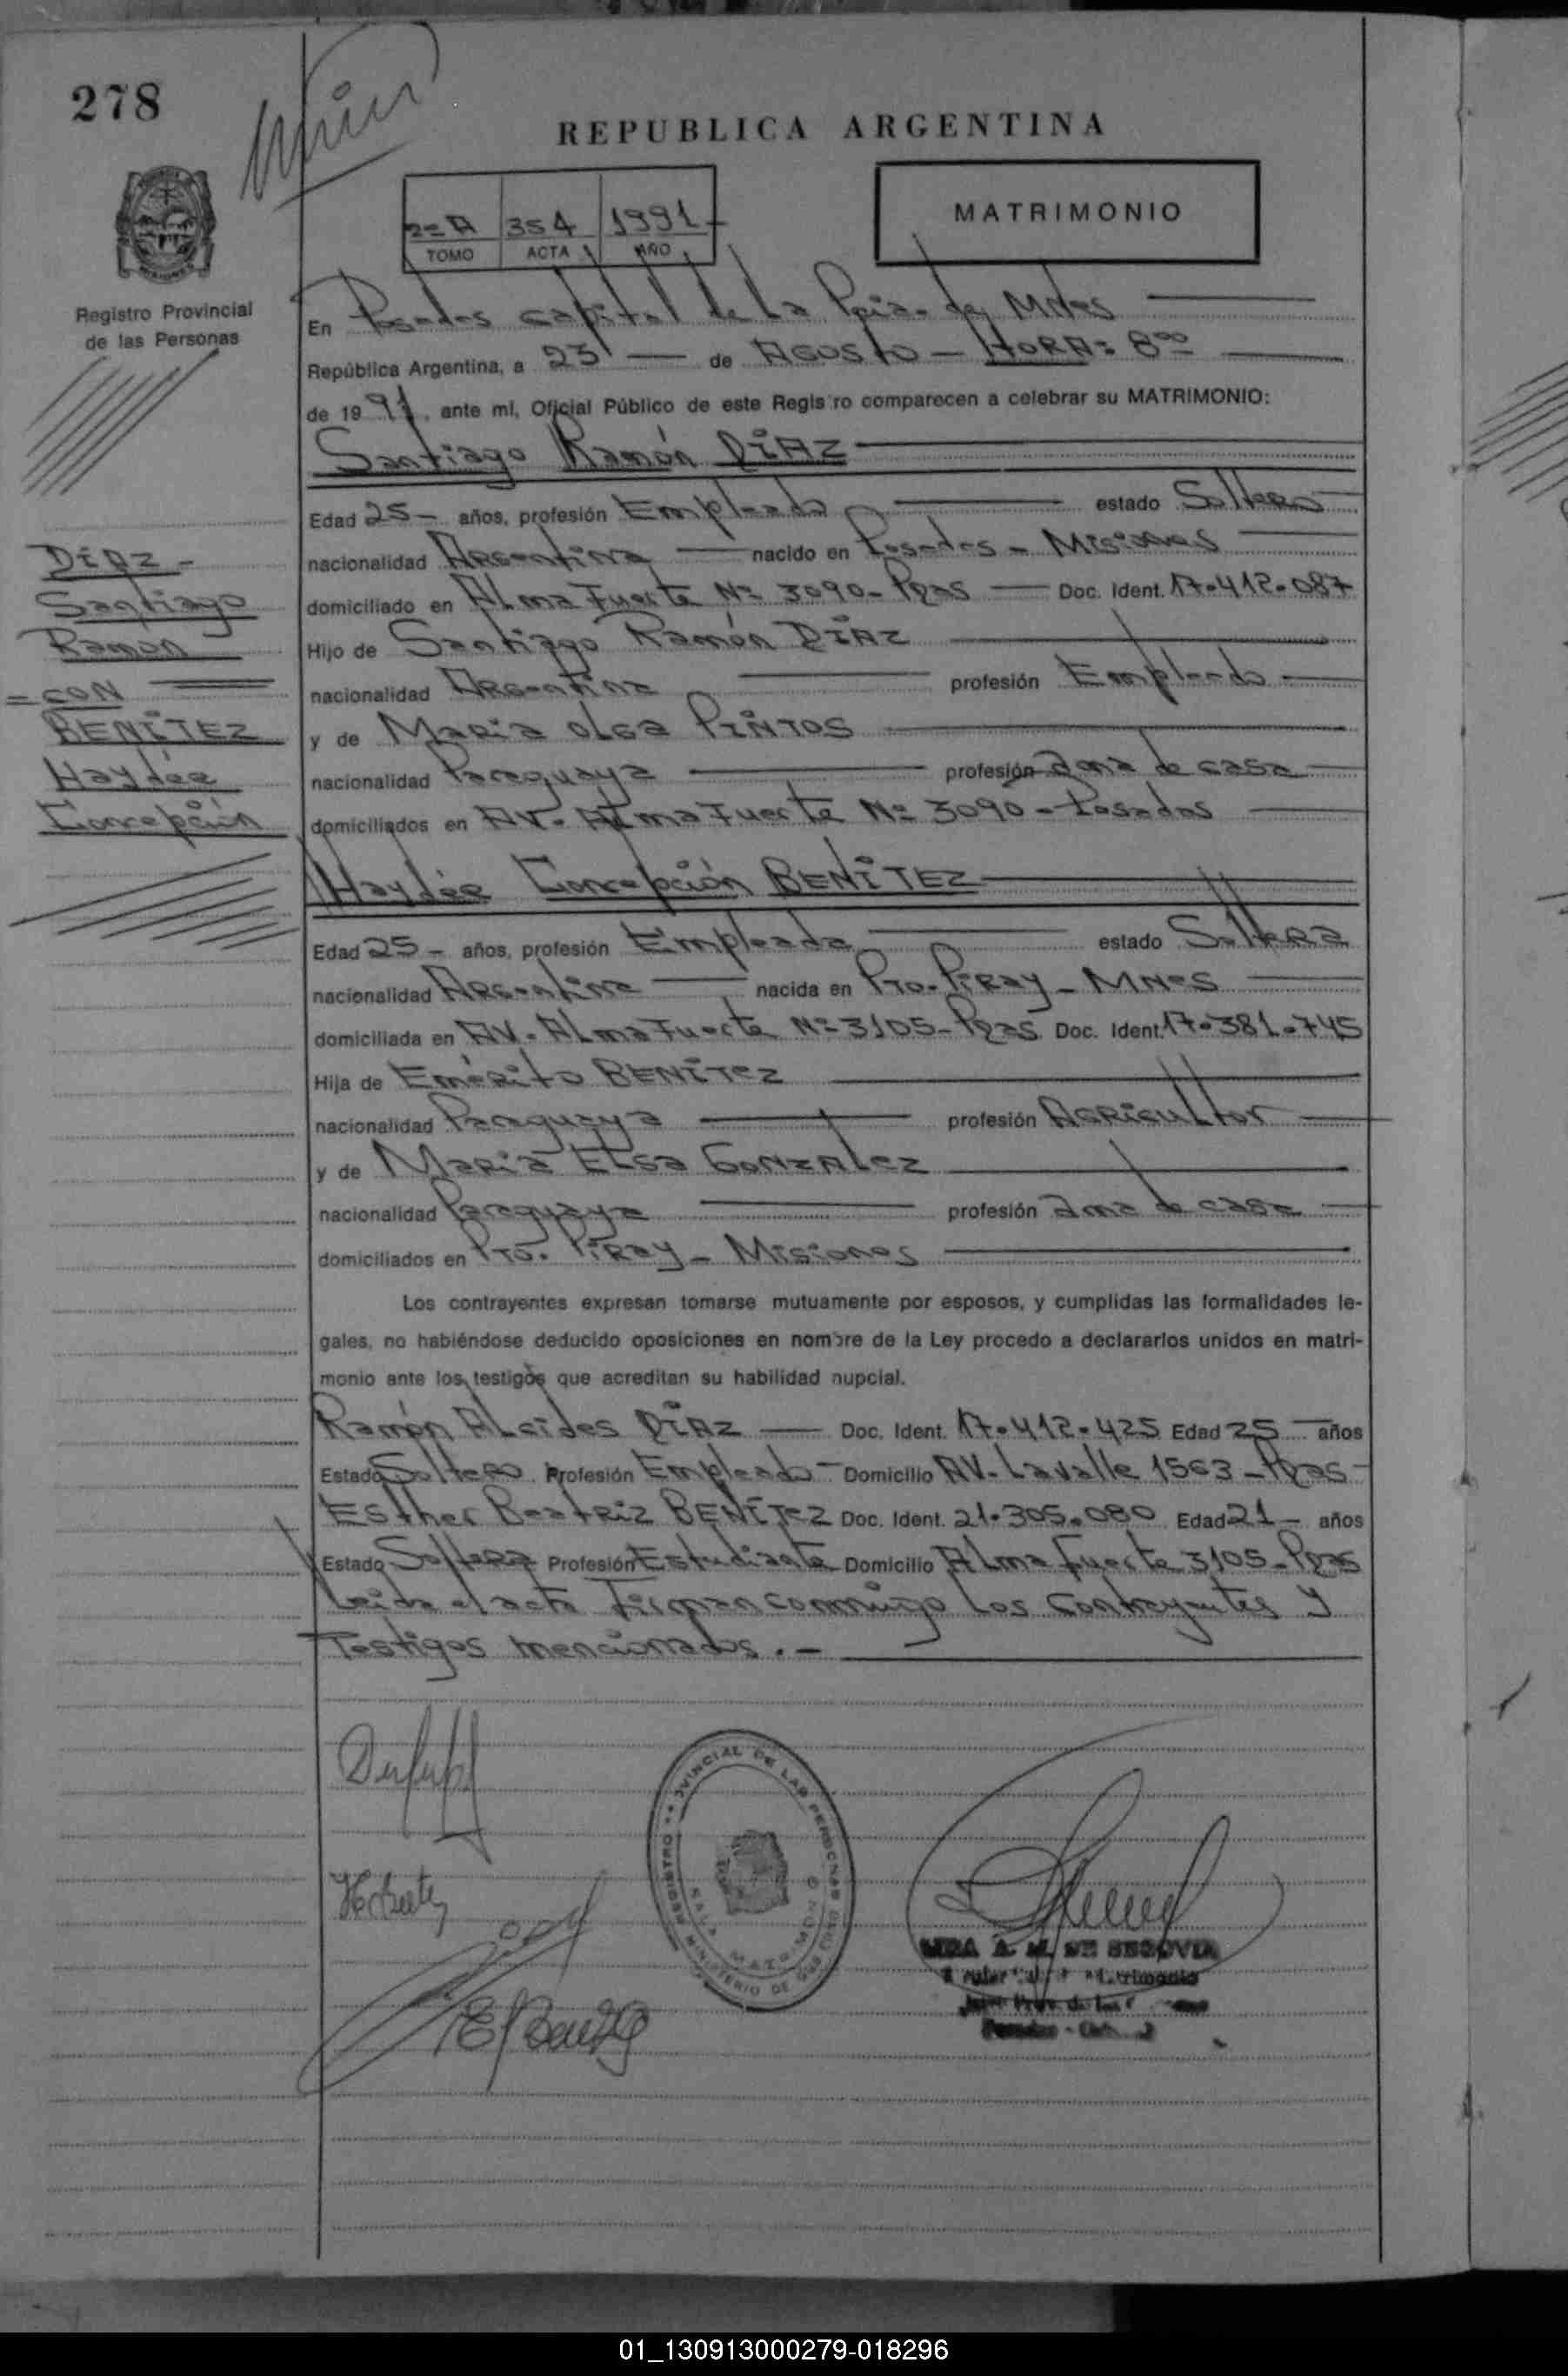 278
REPUBLICA ARGENTINA
2=A 354 1991
TOMO ACTA AÑO
MATRIMONIO
Registro Provincial
de las Personas
En Posadas capital de La Pcia. de MNes
República Argentina, a 23 de AGOSTO - HORA: 8oo
de 1991, ante mí, Oficial Público de este Registro comparecen a celebrar su MATRIMONIO:
Santiago Ramón DÍAZ
Edad 25- años, profesión Empleado estado Soltero
nacionalidad Argentina nacido en Posadas - Misiones
domiciliado en ALma Fuerte Nº 3090- Pdas Doc. Ident. 17.412.087
Hijo de Santiago Ramón DÍAZ
nacionalidad Argentina profesión Empleado
y de María OLGa PINTOS
nacionalidad Paraguaya profesión ama de casa
domiciliados en AV. ALma Fuerte Nº 3090 - Posadas
DÍAZ -
Santiago
Ramon
= CON
BENÍTEZ
Haydée
Concepción
Haydée Concepción BENÍTEZ
Edad 25- años, profesión Empleada estado Soltera
nacionalidad Argentina nacida en Pto. Piray - MNes
domiciliada en AV. ALma Fuerte Nº 3105- Pdas Doc. Ident. 17.381.745
Hija de Emérito BENÍTEZ
nacionalidad Paraguaya profesión AGRicultor
y de María ELsa GONZALez
nacionalidad Paraguaya profesión ama de casa
domiciliados en Pto. Piray - Misiones
Los contrayentes expresan tomarse mutuamente por esposos, y cumplidas las formalidades le-
gales, no habiéndose deducido oposiciones en nombre de la Ley procedo a declararlos unidos en matri-
monio ante los testigos que acreditan su habilidad nupcial.
Ramón ALcides DÍAZ Doc. Ident. 17.412.425 Edad 25 años
Estado Soltero Profesión Empleado - Domicilio AV. Lavalle 1563 - Pdas
Esther Beatriz BENÍTEZ Doc. Ident. 21.305.080 Edad 21 - años
Estado Soltera Profesión Estudiante Domicilio ALma Fuerte 3105- Pdas
Leida el acta Firman conmigo Los Contrayentes y
Testigos mencionados.-
REGISTRO PROVINCIAL DE LAS PERSONAS
SALA MATRIMONIO
MINISTERIO DE GOBIERNO
A. M. DE SEGOVIA
01_130913000279-018296